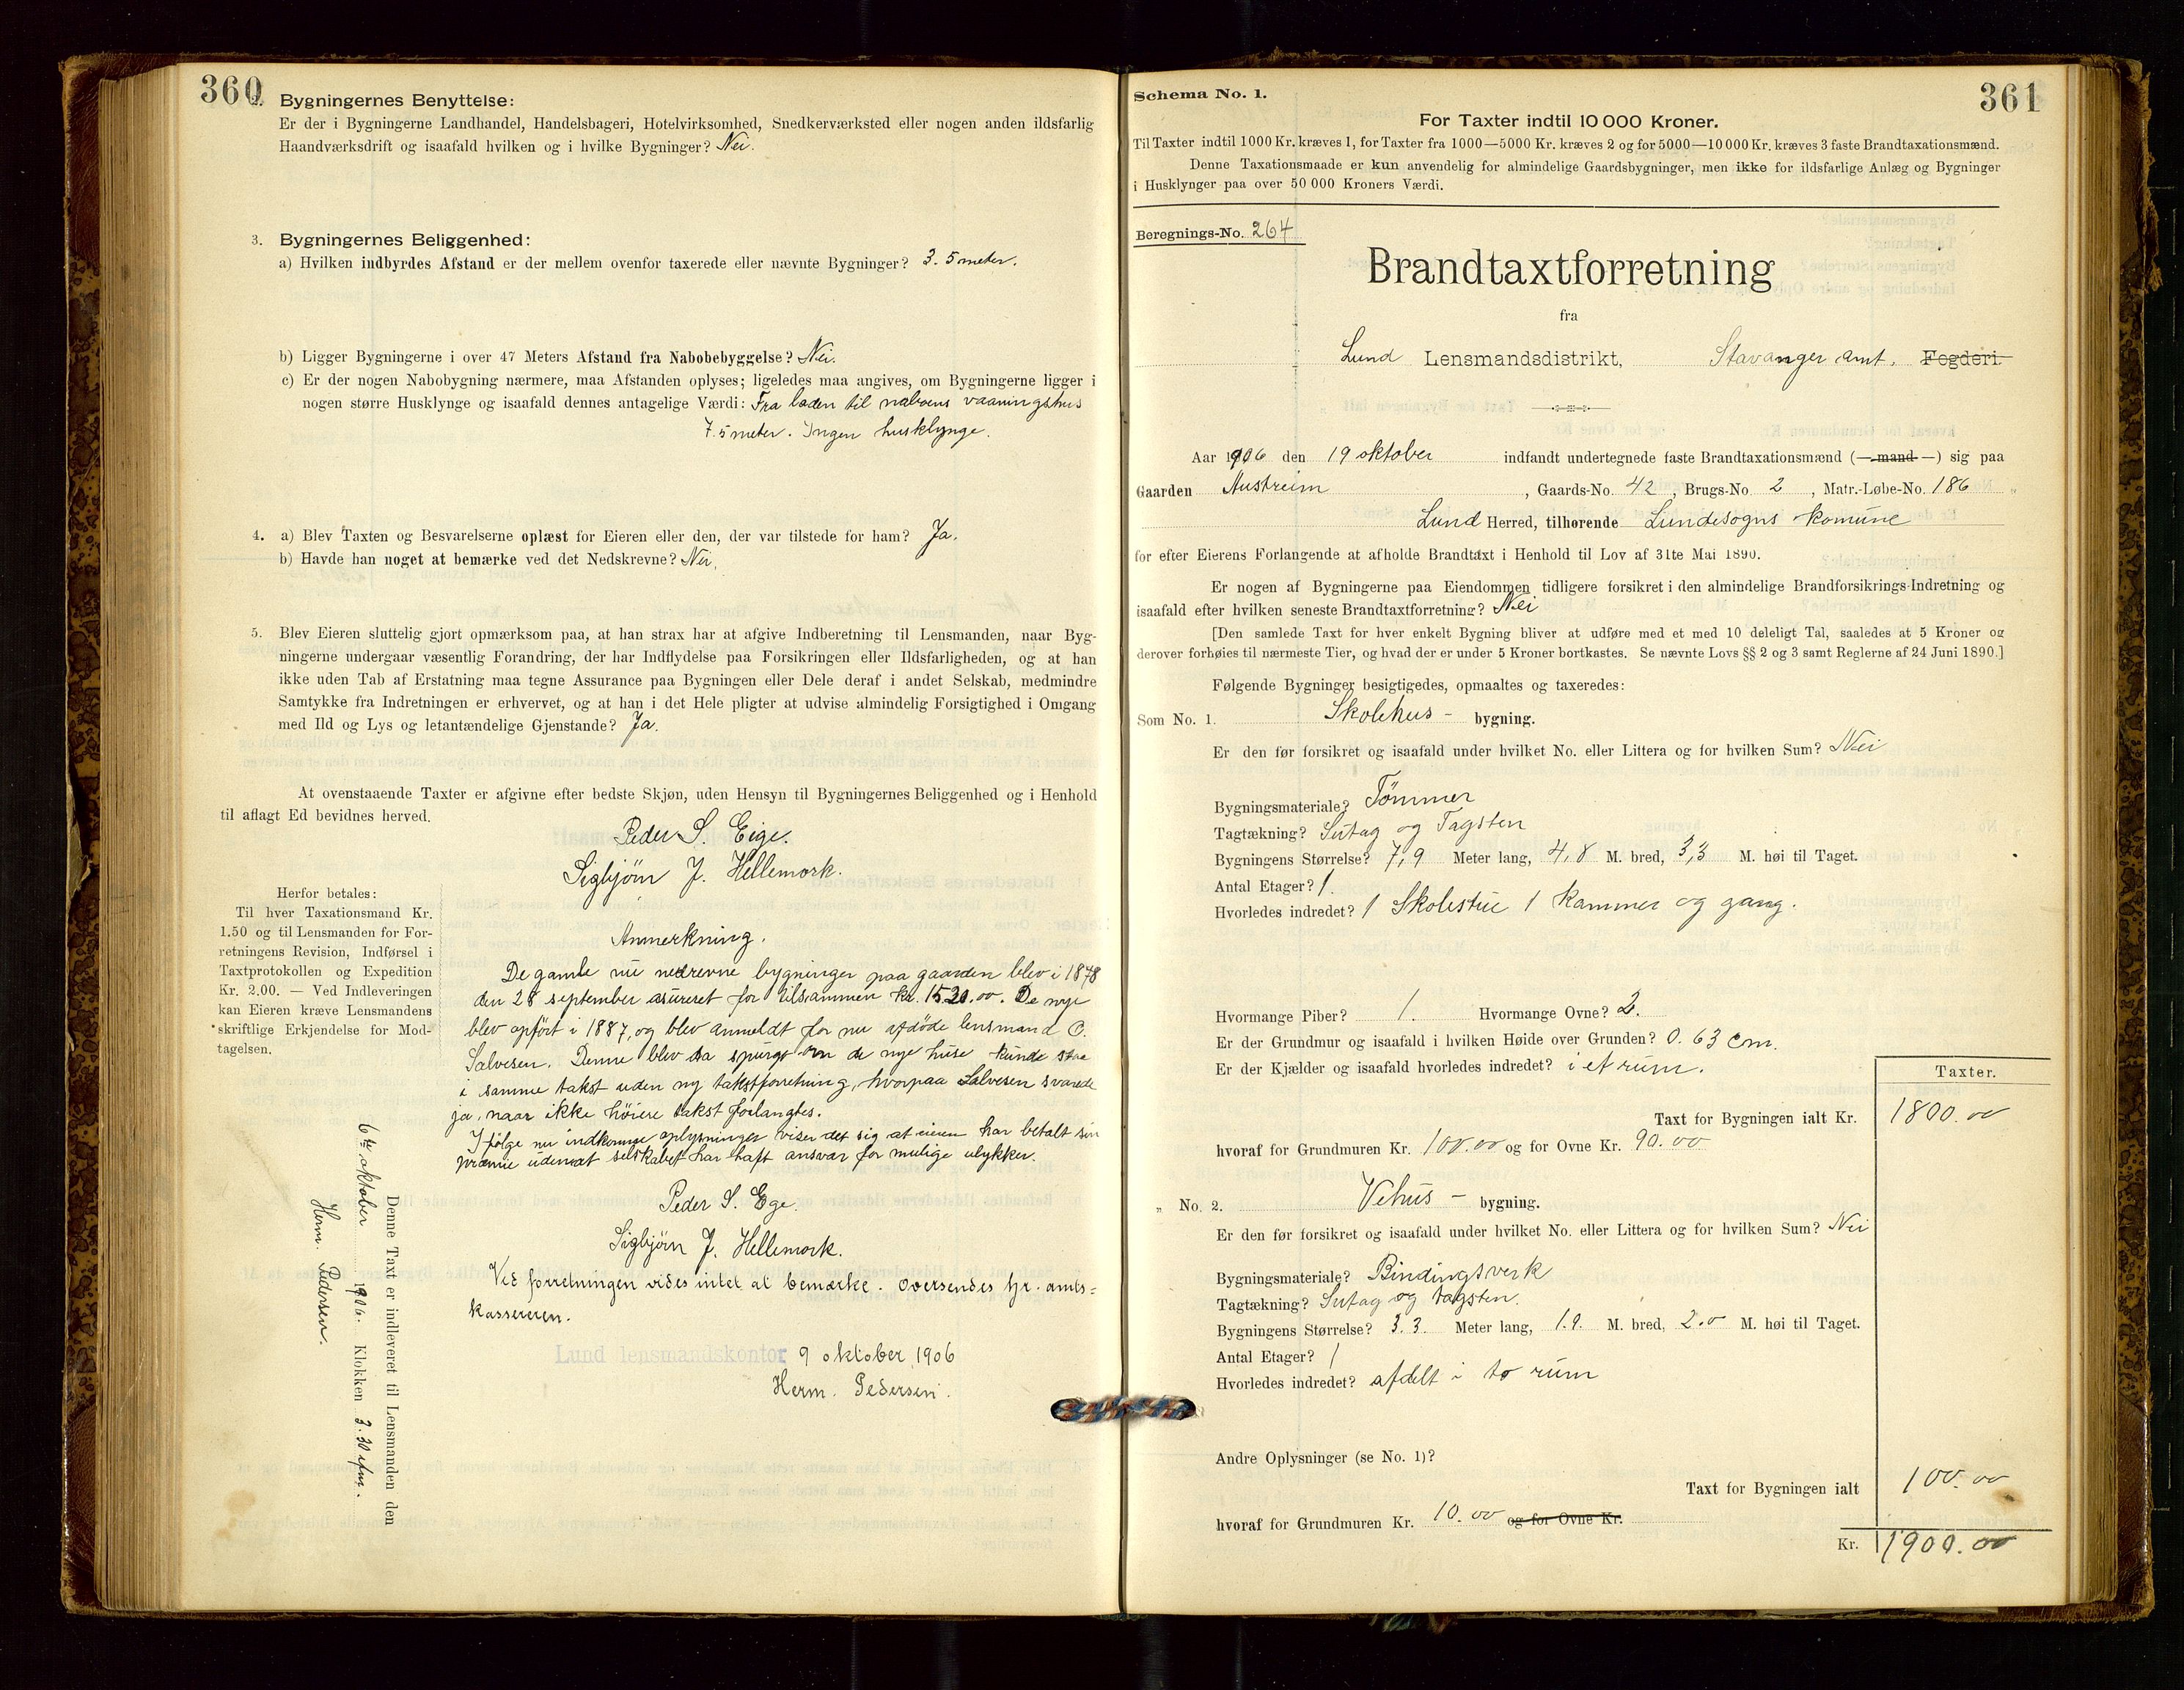 360
2. Bygningernes Benyttelse:
Er der i Bygningerne Landhandel, Handelsbageri, Hotelvirksomhed, Snedkerværksted eller nogen anden ildsfarlig
Haandværksdrift og isaafald hvilken og i hvilke Bygninger? Nei.
3. Bygningernes Beliggenhed:
a) Hvilken indbyrdes Afstand er der mellem ovenfor taxerede eller nævnte Bygninger? 3.5 meter.
b) Ligger Bygningerne i over 47 Meters Afstand fra Nabobebyggelse? Nei.
c) Er der nogen Nabobygning nærmere, maa Afstanden oplyses; ligeledes maa angives, om Bygningerne ligger i
nogen større Husklynge og isaafald dennes antagelige Værdi: Fra laden til naboens vaaningshus
7.5 meter. Ingen husklynge.
4. a) Blev Taxten og Besvarelserne oplæst for Eieren eller den, der var tilstede for ham? Ja.
b) Havde han noget at bemærke ved det Nedskrevne? Nei,
5. Blev Eieren sluttelig gjort opmærksom paa, at han strax har at afgive Indberetning til Lensmanden, naar Byg-
ningerne undergaar væsentlig Forandring, der har Indflydelse paa Forsikringen eller Ildsfarligheden, og at han
ikke uden Tab af Erstatning maa tegne Assurance paa Bygningen eller Dele deraf i andet Selskab, medmindre
Samtykke fra Indretningen er erhvervet, og at han i det Hele pligter at udvise almindelig Forsigtighed i Omgang
med Ild og Lys og letantændelige Gjenstande? Ja.
At ovenstaaende Taxter er afgivne efter bedste Skjøn, uden Hensyn til Bygningernes Beliggenhed og i Henhold
til aflagt Ed bevidnes herved.
Peder S. Eige.
Sigbjörn J. Hellemork.
Herfor betales:
Til hver Taxationsmand Kr.
1.50 og til Lensmanden for For-
retningens Revision, Indførsel i
Taxtprotokollen og Expedition
Kr. 2.00. — Ved Indleveringen
kan Eieren kræve Lensmandens
skriftlige Erkjendelse for Mod-
tagelsen.
Anmerkning.
De gamle nu nedrevne bygninger paa gaarden blev i 1878
den 28 september asureret for tilsammen kr. 1520.00. De nye
blev opfört i 1887, og blev anmeldt for nu afdöde lensmand O.
Salvesen. Denne blev da spurgt om de nye huse kunde staa
i samme takst uden ny takstforretning, hvorpaa Salvesen svarede
ja, naar ikke höiere takst forlangtes.
Ifölge nu indkomne oplysninger viser det sig at eieren har betalt sin
præmie uden at selskabet har haft ansvar for mulige ulykker.
Peder S. Ege.
Sigbjörn J. Hellemork.
Ved forretningen vides intet at bemærke. Oversendes hr. amts=
kassereren.
Lund lensmandskontor 9 oktober 1906
Herm. Pedersen.
Denne Taxt er indleveret til Lensmanden den
6te oktober 1906. Klokken 3.30 efm.
Herm. Pedersen.
361
Schema No. 1.
For Taxter indtil 10 000 Kroner.
Til Taxter indtil 1000 Kr. kræves 1, for Taxter fra 1000—5000 Kr. kræves 2 og for 5000—10 000 Kr. kræves 3 faste Brandtaxationsmænd.
Denne Taxationsmaade er kun anvendelig for almindelige Gaardsbygninger, men ikke for ildsfarlige Anlæg og Bygninger
i Husklynger paa over 50 000 Kroners Værdi.
Beregnings-No. 264
Brandtaxtforretning
fra
Lund Lensmandsdistrikt, Stavanger amt. Fogderi.
Aar 1906 den 19 oktober indfandt undertegnede faste Brandtaxationsmænd (— mand —) sig paa
Gaarden Austreim, Gaards-No. 42, Brugs-No. 2, Matr.-Løbe-No. 186
Lund Herred, tilhørende Lundesogns komune
for efter Eierens Forlangende at afholde Brandtaxt i Henhold til Lov af 31te Mai 1890.
Er nogen af Bygningerne paa Eiendommen tidligere forsikret i den almindelige Brandforsikrings-Indretning og
isaafald efter hvilken seneste Brandtaxtforretning? Nei
[Den samlede Taxt for hver enkelt Bygning bliver at udføre med et med 10 deleligt Tal, saaledes at 5 Kroner og
derover forhøies til nærmeste Tier, og hvad der er under 5 Kroner bortkastes. Se nævnte Lovs §§ 2 og 3 samt Reglerne af 24 Juni 1890.]
Følgende Bygninger besigtigedes, opmaaltes og taxeredes:
Som No. 1. Skolehus - bygning.
Er den før forsikret og isaafald under hvilket No. eller Littera og for hvilken Sum? Nei
Bygningsmateriale? Tömmer
Tagtækning? Sutag og Tagsten
Bygningens Størrelse? 7,9 Meter lang, 4,8 M. bred, 3,3 M. høi til Taget.
Antal Etager? 1.
Hvorledes indredet? 1 Skolestue 1 kammer og gang.
Hvormange Piber? 1. Hvormange Ovne? 2.
Er der Grundmur og isaafald i hvilken Høide over Grunden? 0.63 cm.
Er der Kjælder og isaafald hvorledes indredet? i et rum.
Taxter.
Taxt for Bygningen ialt Kr. 1800.00
hvoraf for Grundmuren Kr. 100.00 og for Ovne Kr. 90.00
„ No. 2. Vehus - bygning.
Er den før forsikret og isaafald under hvilket No. eller Littera og for hvilken Sum? Nei
Bygningsmateriale? Bindingsverk
Tagtækning? Sutag og tagsten.
Bygningens Størrelse? 3.3. Meter lang, 1.9. M. bred, 2.0 M. høi til Taget.
Antal Etager? 1
Hvorledes indredet? afdelt i to rum
Andre Oplysninger (se No. 1)?
Taxt for Bygningen ialt 100.00
hvoraf for Grundmuren Kr. 10.00 og for Ovne Kr.
Kr. 1900.00